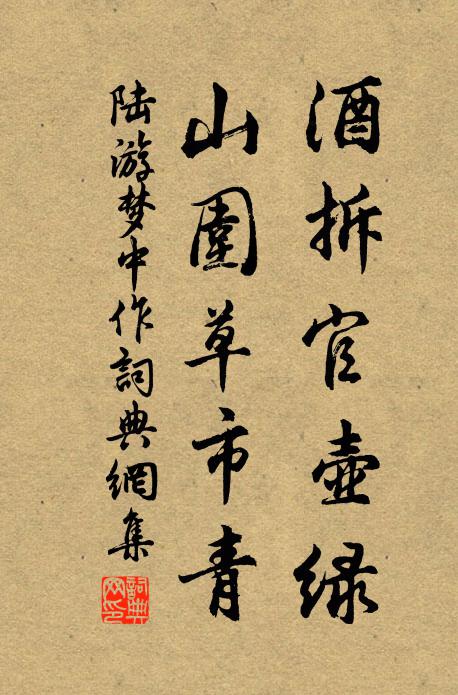 酒拆官壶绿
山圍草市青
陆游梦中作詞典網集
詞典网印